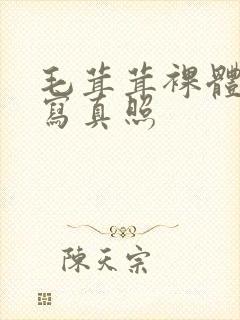 毛茸茸裸體
寫真照
陳天宗